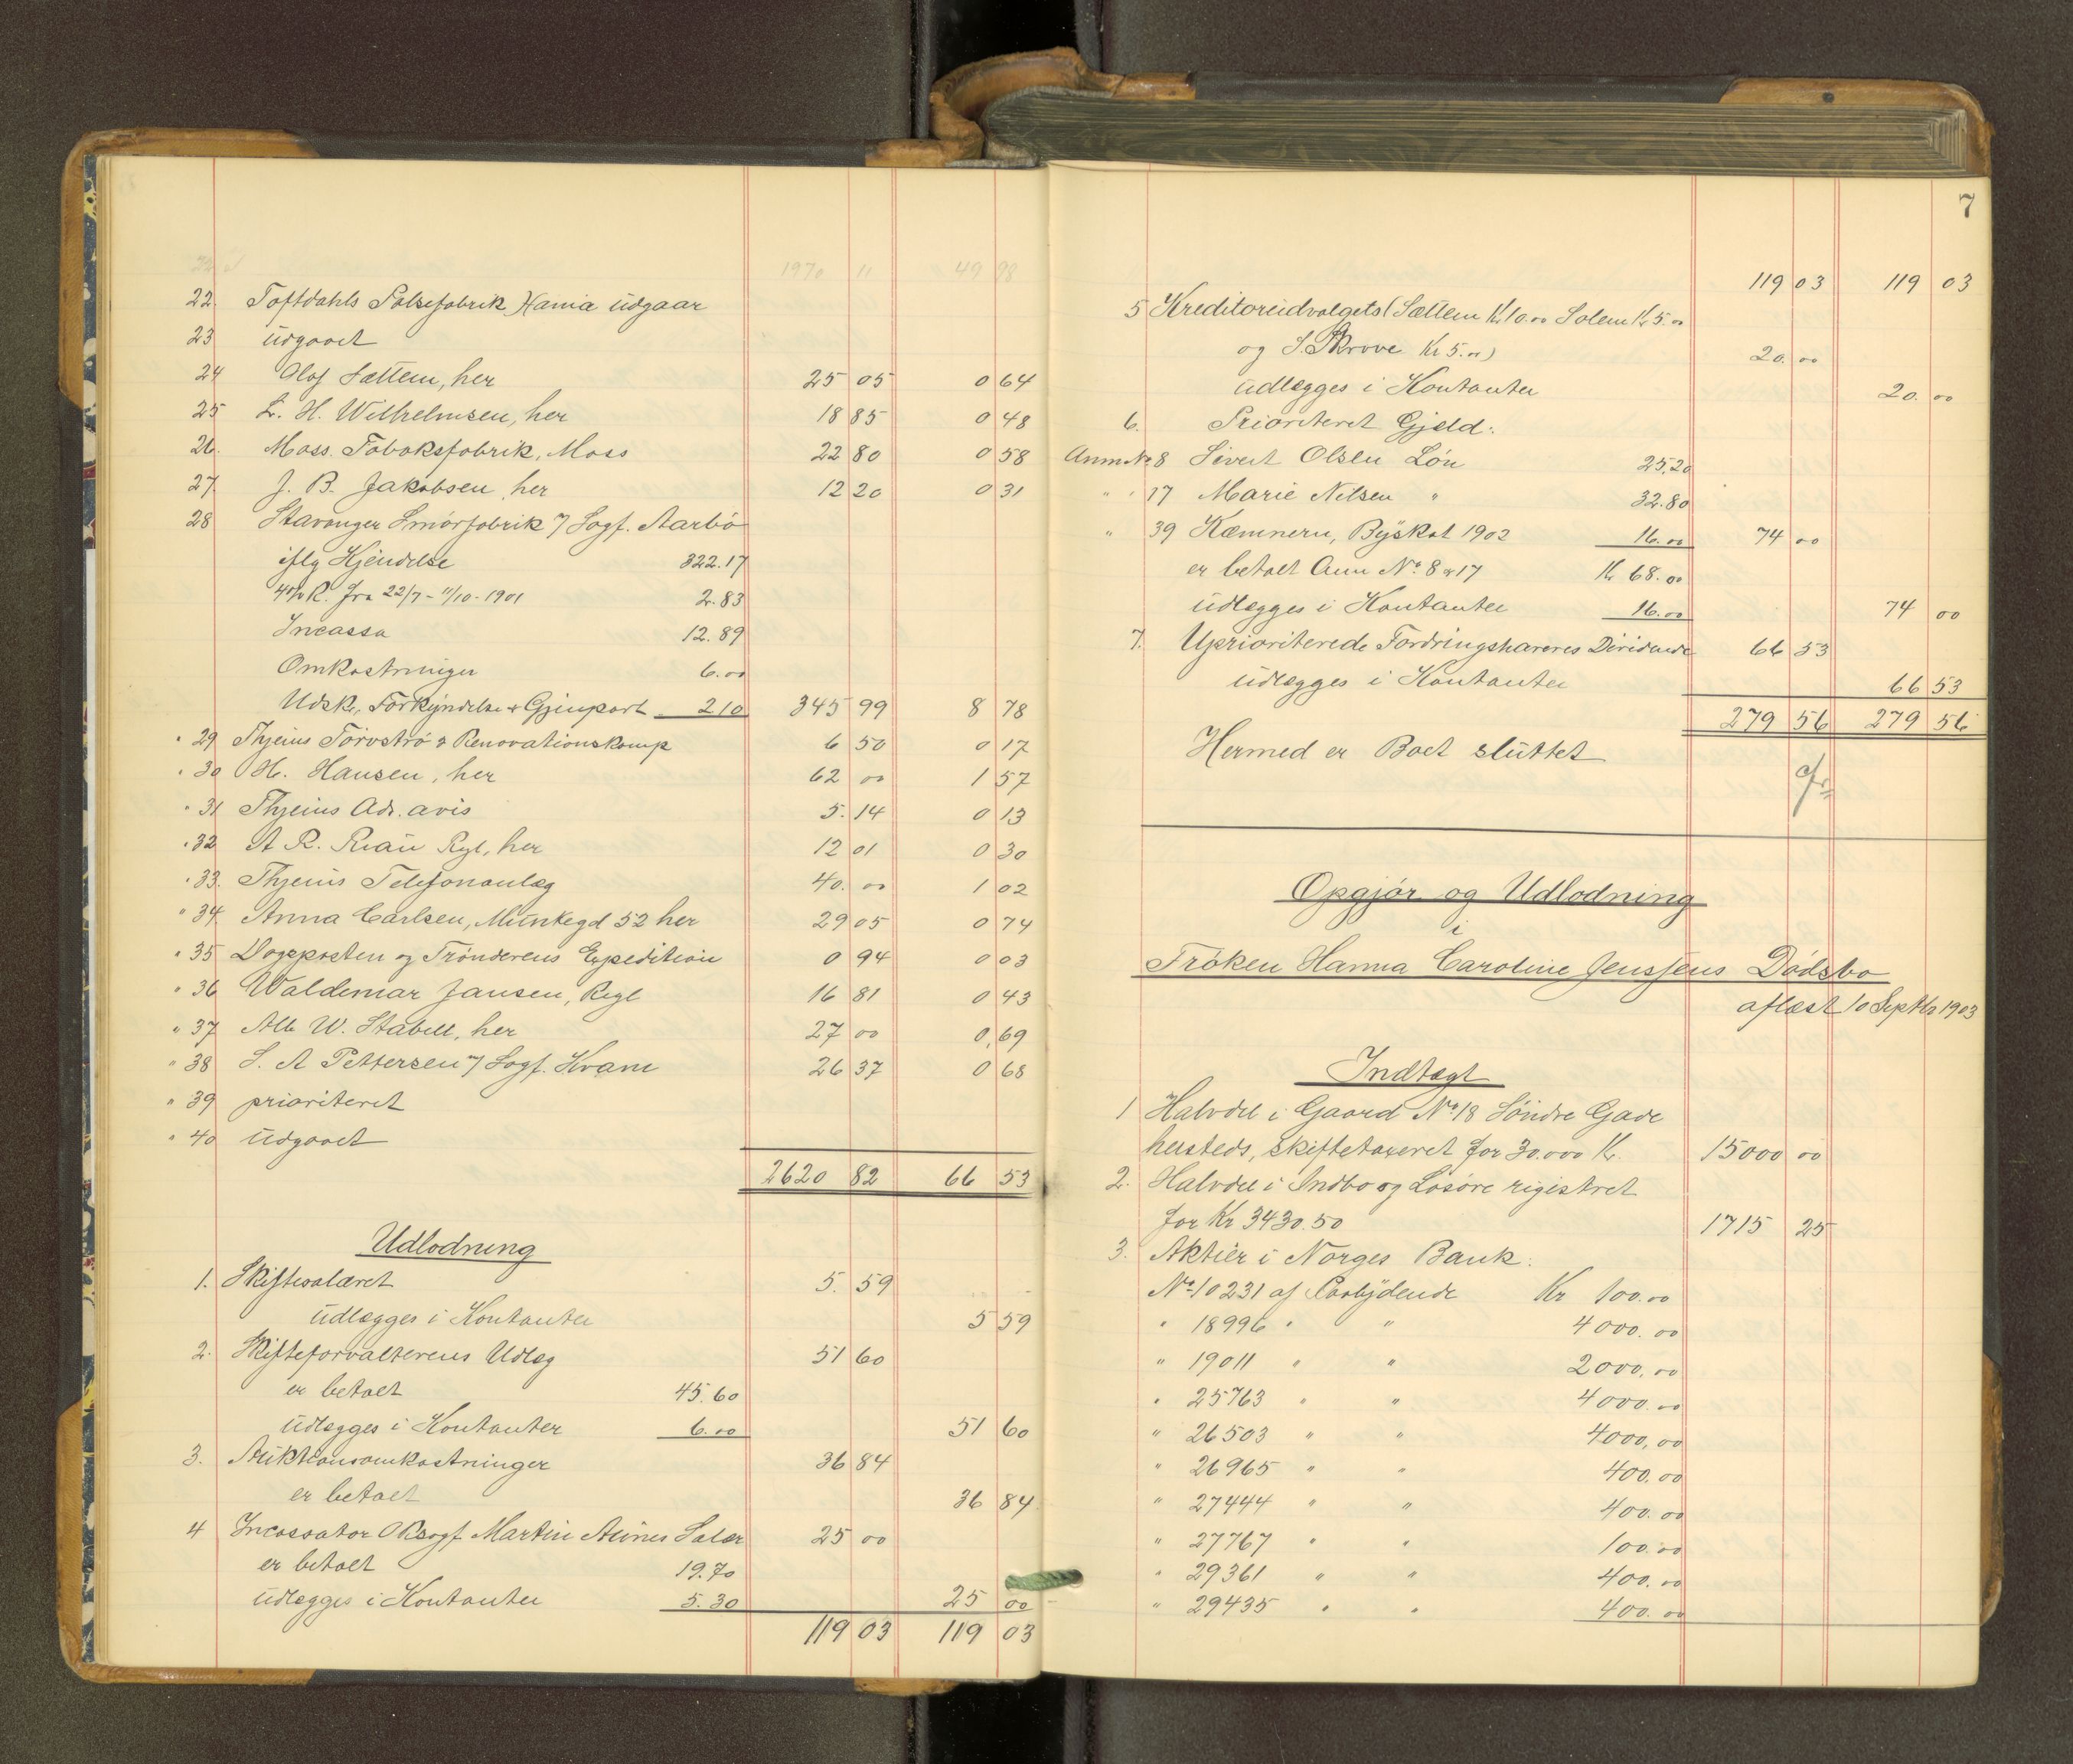 1970 11 49 98
22. Toftdahls Pølsefabrik Hania udgaar
23 udgaaet
24 Olaf Sættem, her 25 05 0 64
25 L. H. Wilhelmsen, her 18 85 0 48
26. Moss Tobaksfabrik, Moss 22 80 0 58
27. J. B. Jakobsen, her 12 20 0 31
28 Stavanger Smörfabrik v/ Sagf. Aarbö
iflg Kjendelse 322.17
4% R. fra 22/7 - 11/10 - 1901 2.83
Incasso 12.89
Omkostninger 6.00
Udsk., Forkyndelse & Gjenpart 2 10 345 99 8 78
" 29 Thjeims Törvströ & Renovationskomp 6 50 0 17
" 30 H. Hansen, her 62 00 1 57
" 31 Thjeims Adr. avis 5. 14 0 13
" 32 A R. Riau Rgl, her 12 01 0 30
" 33. Thjeims Telefonanlæg 40. 00 1 02
" 34 Anna Carlsen, Munkegd 52 her 29 05 0 74
" 35 Dagsposten og Trönderens Expedition 0 94 0 03
" 36 Waldemar Jansen, Regl 16 81 0 43
" 37 Alb W. Stabell, her 27 00 0,69
" 38 S. A Pettersen v/ Sagf. Kvam 26 37 0 68
" 39 prioriteret
" 40 udgaaet
2620 82 66 53
Udlodning
1. Skiftesalæret 5. 59
udlægges i Kontanter 5 59
2. Skifteforvalterens Udlæg 51 60
er betalt 45.60
udlægges i Kontanter 6.00 51 60
3. Auktionsomkostninger 36 84
er betalt 36 84
4 Incassator ORsagf. Martin Aunes Salær 25 00
er betalt 19.70
udlægges i Kontanter 5.30 25 00
119 03 119 03
7
119 03 119 03
5 Kreditorudvalgets (Sættem Kr 10.00 Solem Kr 5.00
og S. Skrove Kr 5.00) 20. 00
udlægges i Kontanter 20. 00
6. Prioriteret Gjeld:
Anm No 8 Sivert Olsen Lön 25.20
" " 17 Marie Nilsen " 32.80
" 39 Kæmneren, Byskat 1902 16.00 74 00
er betalt Anm No 8 & 17 Kr 68.00
udlægges i Kontanter 16.00 74 00
7. Uprioriterede Fordringshaveres Dividende 66 53
udlægges i Kontanter 66 53
279 56 279 56
Hermed er Boet sluttet
Opgjör og Udlodning
i
Fröken Hanna Caroline Jenssens Dödsbo
aflæst 10 Septbr 1903
Indtægt
1 Halvdel i Gaard No 18 Söndre Gade
hersteds, skiftetaxeret for 30.000 Kr. 15000 00
2. Halvdel i Indbo og Lösöre rigistret
for Kr 3430.50 1715 25
3. Aktier i Norges Bank:
No 10231 af Paalydende Kr 100.00
" 18996 " " 4000.00
" 19011 " " 2000,00
" 25763 " " 4000.00
" 26503 " " 4000,00
" 26965 " " 400.00
" 27444 " " 400.00
" 27767 " " 100.00
" 29361 " " 400.00
" 29435 " " 400.00